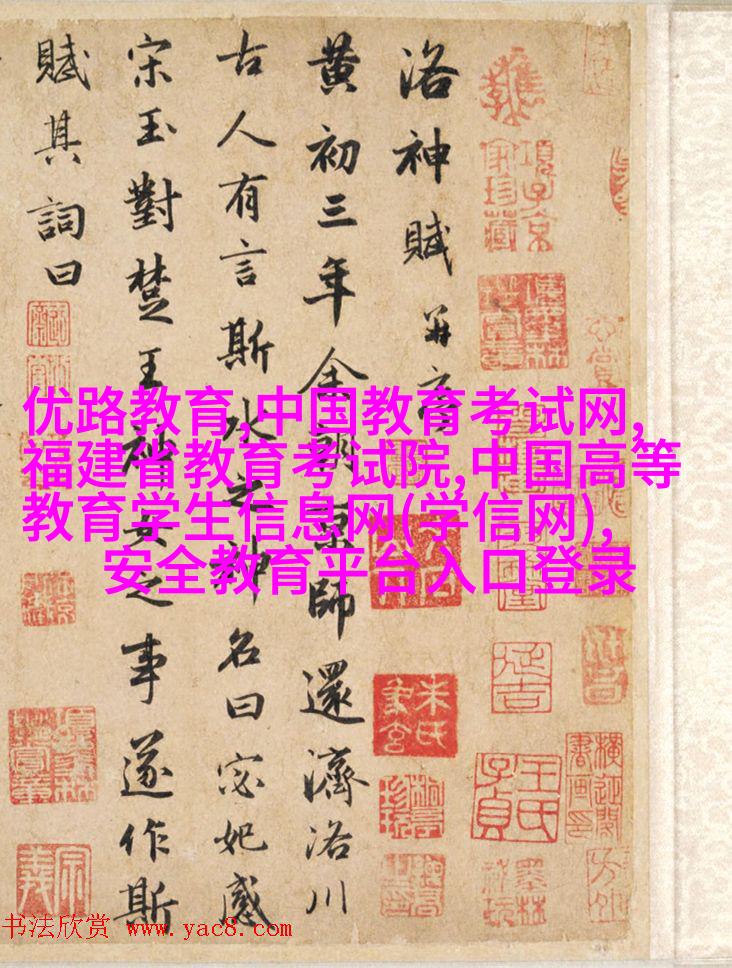 洛神賦並序
黄初三年余朝京師還濟洛川
古人有言斯水之神名曰宓妃感
宋玉對楚王神女之事遂作斯
賦其詞曰
項子京
家珍藏
朱氏
象玄
王氏
子貞
延吉
优路教育,中国教育考试网,
福建省教育考试院,中国高等
教育学生信息网(学信网),
安全教育平台入口登录
书法欣赏 www.yac8.com